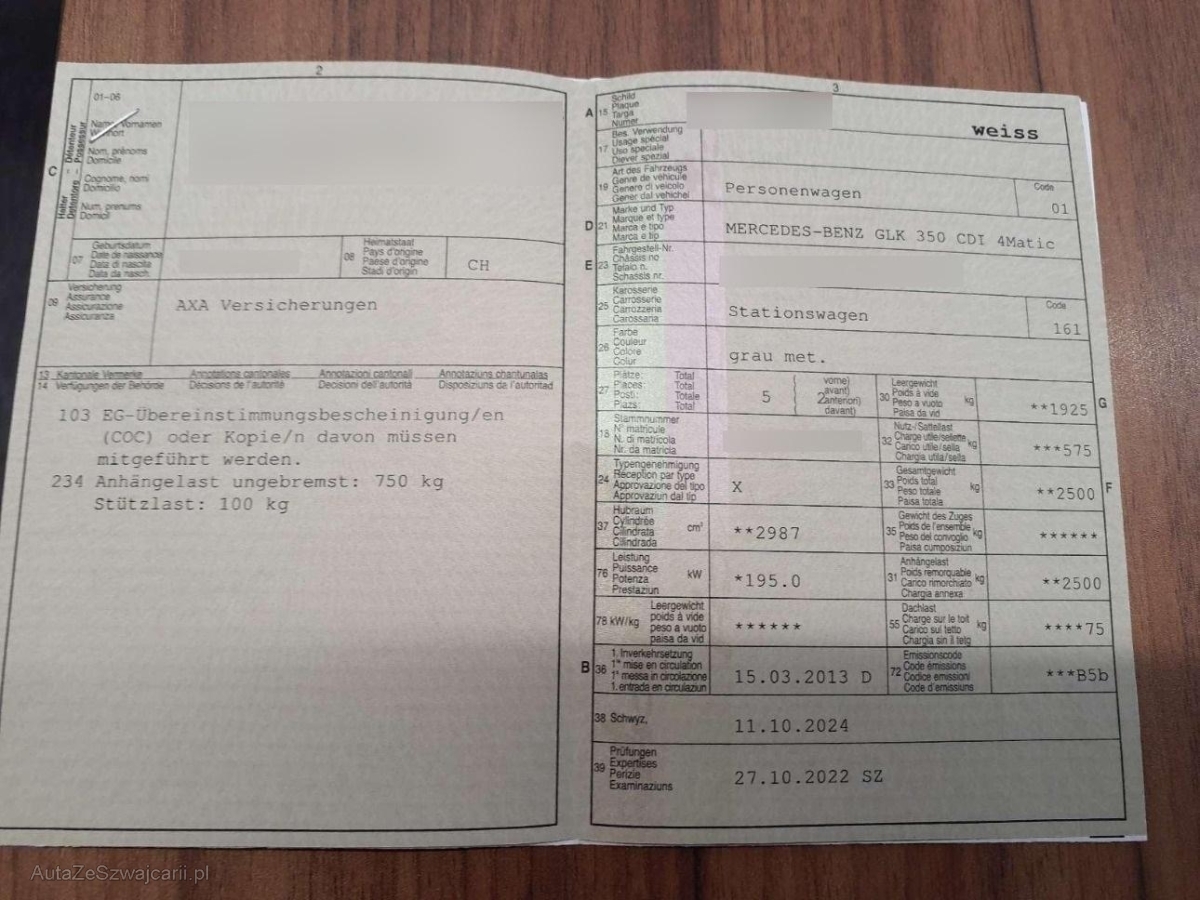 2
01-06
Name, Vornamen
Wohnort
Nom, prénoms
Domicile
Cognome, nomi
Domicilio
Num, prenums
Domicil
C
Halter - Détenteur
Detentore - Possessur
07
Geburtsdatum
Date de naissance
Data di nascita
Data da nasch.
08
Heimatstaat
Pays d'origine
Paese d'origine
Stadi d'origin
CH
09
Versicherung
Assurance
Assicurazione
Assicuranza
AXA Versicherungen
13 Kantonale Vermerke Annotations cantonales Annotazioni cantonali Annotaziuns chantunalas
14 Verfügungen der Behörde Décisions de l'autorité Decisioni dell'autorità Disposiziuns da l'autoritad
103 EG-Übereinstimmungsbescheinigung/en
(COC) oder Kopie/n davon müssen
mitgeführt werden.
234 Anhängelast ungebremst: 750 kg
Stützlast: 100 kg
3
A 15
Schild
Plaque
Targa
Numer
weiss
17
Bes. Verwendung
Usage spécial
Uso speciale
Diever spezial
19
Art des Fahrzeugs
Genre de véhicule
Genere di veicolo
Gener dal vehichel
Personenwagen
Code
01
D 21
Marke und Typ
Marque et type
Marca e tipo
Marca e tip
MERCEDES-BENZ GLK 350 CDI 4Matic
E 23
Fahrgestell-Nr.
Châssis no
Telaio n.
Schassis nr.
25
Karosserie
Carrosserie
Carrozzeria
Carossaria
Stationswagen
Code
161
26
Farbe
Couleur
Colore
Colur
grau met.
27
Plätze: Total
Places: Total
Posti: Totale
Plazs: Total
5
vorne)
avant)
2 anteriori)
davant)
30
Leergewicht
Poids à vide
Peso a vuoto
Paisa da vid
kg
**1925
G
18
Stammnummer
N° matricule
N. di matricola
Nr. da matricla
32
Nutz-/Sattellast
Charge utile/sellette
Carico utile/sella
Chargia utila/sella
kg
***575
24
Typengenehmigung
Réception par type
Approvazione del tipo
Approvaziun dal tip
X
33
Gesamtgewicht
Poids total
Peso totale
Paisa totala
kg
**2500
F
37
Hubraum
Cylindrée
Cilindrata
Cilindrada
cm³
**2987
35
Gewicht des Zuges
Poids de l'ensemble
Peso del convoglio
Paisa cumposiziun
kg
******
76
Leistung
Puissance
Potenza
Prestaziun
kW
*195.0
31
Anhängelast
Poids remorquable
Carico rimorchiato
Chargia annexa
kg
**2500
78 kW/kg
Leergewicht
poids à vide
peso a vuoto
paisa da vid
******
55
Dachlast
Charge sur le toit
Carico sul tetto
Chargia sin il tetg
kg
****75
B 36
1. Inverkehrsetzung
1re mise en circulation
1a messa in circolazione
1. entrada en circulaziun
15.03.2013 D
72
Emissionscode
Code émissions
Codice emissioni
Code d'emissiuns
***B5b
38 Schwyz,
11.10.2024
39
Prüfungen
Expertises
Perizie
Examinaziuns
27.10.2022 SZ
AutaZeSzwajcarii.pl